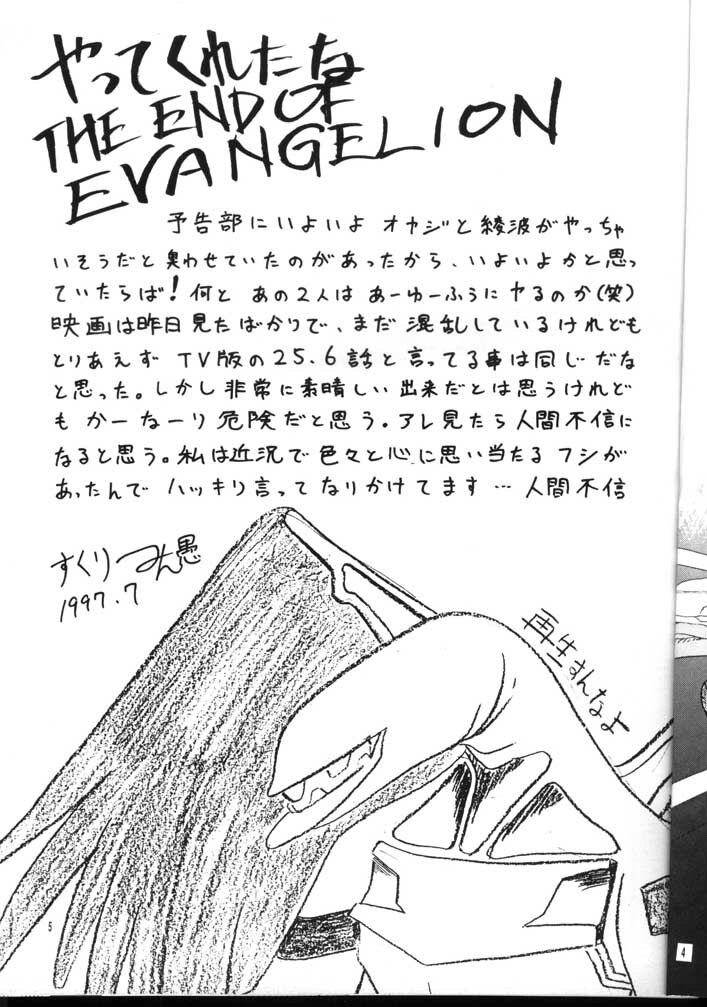 やってくれたな
THE END OF
EVANGELION
予告部にいよいよ オヤジと綾波がやっちゃ
いそうだと臭わせていたのがあったから、いよいよかと思っ
ていたらば！何と あの2人は あーゆーふうにヤるのか(笑)
映画は昨日見たばかりで、まだ 混乱しているけれども
とりあえず TV版の25.6話と言ってる事は同じだな
と思った。しかし非常に素晴しい出来だとは思うけれど
も かーなーり 危険だと思う。アレ見たら人間不信に
なると思う。私は近況で色々と心に思い当たる フシが
あったんで ハッキリ言ってなりかけてます…人間不信
すくりつん愚
1997.7
再生すんなよ
5
4